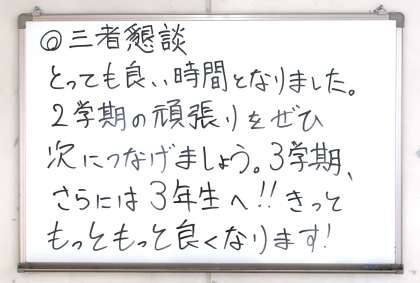 ◎三者懇談
とっても良い時間となりました。
2学期の頑張りをぜひ
次につなげましょう。3学期、
さらには3年生へ!!きっと
もっともっと良くなります!